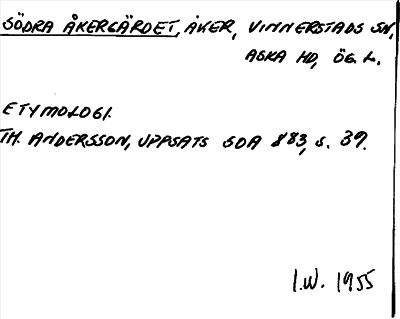 SÖDRA ÅKERGÄRDET, ÅKER, VINNERSTADS SN,
ASKA HD, ÖG. L.
ETYMOLOGI.
TH. ANDERSSON, UPPSATS SOA 883, s. 39.
I.W. 1955